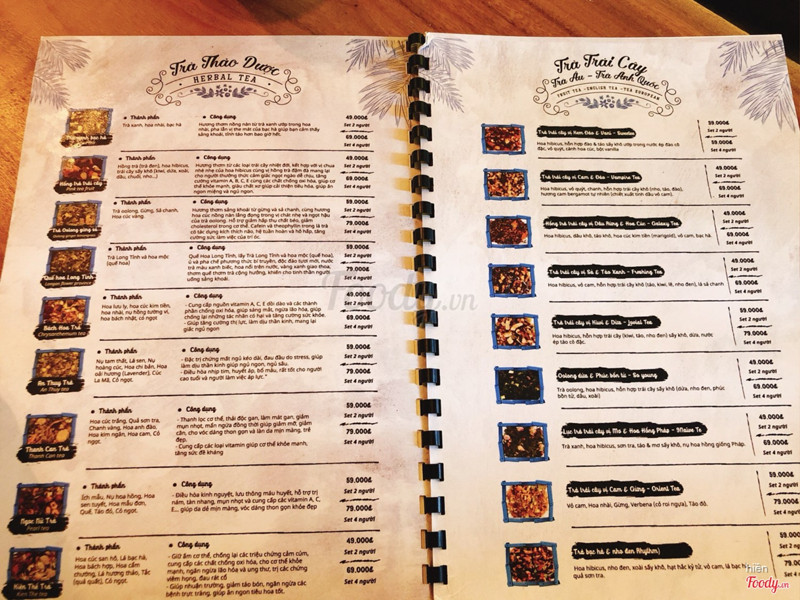 Trà Thảo Dược
HERBAL TEA
Thành phần
Trà xanh, hoa nhài, bạc hà
Công dụng
Hương thơm nồng nàn từ trà xanh ướp trong hoa
nhài, pha lẫn vị the mát của bạc hà giúp bạn cảm thấy
sảng khoái, tỉnh táo hơn bao giờ hết.
49.000đ
Set 2 người
69.000đ
Set 4 người
Hồng trà trái cây
Pink tea fruit
Thành phần
Hồng trà (trà đen), hoa hibicus,
trái cây sấy khô (kiwi, dứa, xoài,
dâu, chuối, nho...)
Công dụng
Hương thơm từ các loại trái cây nhiệt đới, kết hợp với vị chua
nhẹ nhẹ của hoa hibicus cùng vị hồng trà đậm đà mang lại
cho người thưởng thức cảm giác ngọt ngào dễ chịu, tăng
cường vitamin A, B, C, E cùng các chất chống oxi hóa, giúp cơ
thể khỏe mạnh, giàu chất xơ giúp cải thiện tiêu hóa, giúp ăn
ngon miệng và ngủ ngon.
49.000đ
Set 2 người
69.000đ
Set 4 người
Trà Oolong gừng sả
Thành phần
Trà oolong, Gừng, Sả chanh,
Hoa cúc vàng.
Công dụng
Hương thơm sảng khoái từ gừng và sả chanh, cùng hương
hoa cúc nồng nàn lắng đọng trong vị chát nhẹ và ngọt hậu
của trà oolong. Hỗ trợ giảm hấp thu chất béo, giảm
cholesterol trong cơ thể. Cafein và theophyllin trong lá trà
có tác dụng kích thích não, hệ tuần hoàn và hô hấp, tăng
cường sức làm việc của trí óc.
59.000đ
Set 2 người
79.000đ
Set 4 người
Quế hoa Long Tỉnh
Longan flower precincts
Thành phần
Trà Long Tỉnh và hoa mộc
(quế hoa)
Công dụng
Quế Hoa Long Tỉnh, lấy Trà Long Tỉnh và hoa mộc (quế hoa),
ủ và pha chế phương thức bí truyền, độc đáo tươi mới, nước
trà màu xanh biếc, hoa nổi trên nước, vàng xanh giao thoa,
thơm quế thơm trà cộng hưởng, khiến cho tinh thần người
uống sảng khoái.
59.000đ
Set 2 người
79.000đ
Set 4 người
Bách Hoa Trà
Chrysanthemum tea
Thành phần
Hoa lưu ly, hoa cúc kim tiền,
hoa nhài, nụ hồng tường vi,
hoa bách nhật, cỏ ngọt
Công dụng
- Cung cấp nguồn vitamin A, C, E dồi dào và các thành
phần chống oxi hóa, giúp sáng mắt, ngừa lão hóa, giúp
chống lại những tác nhân có hại và tăng cường sức khỏe.
- Giúp tăng cường lực, làm dịu thần kinh, mang lại
giấc ngủ ngon
49.000đ
Set 2 người
69.000đ
Set 4 người
An Thụy Trà
An Thuy tea
Thành phần
Nụ tam thất, Lá sen, Nụ
hoàng cúc, Hoa chi bân, Hoa
oải hương (Lavender), Cúc
La Mã, Cỏ ngọt.
Công dụng
- Đặc trị chứng mất ngủ kéo dài, đau đầu do stress, giúp
làm dịu thần kinh giúp ngủ ngon, ngủ sâu.
- Điều hòa nhịp tim, huyết áp, bổ máu, rất tốt cho người
cao tuổi và người làm việc áp lực."
59.000đ
Set 2 người
79.000đ
Set 4 người
Thanh Can Trà
Thanh Can tea
Thành phần
Hoa cúc trắng, Quả sơn tra,
Chanh vàng, Hoa anh đào,
Hoa kim ngân, Hoa cam, Cỏ
ngọt.
Công dụng
- Thanh lọc cơ thể, thải độc gan, làm mát gan, giảm
mụn nhọt, mẩn ngứa đồng thời giúp giảm mỡ, giảm
cân, cho vóc dáng thon gọn và làn da mịn màng, trẻ
đẹp.
- Cung cấp các loại vitamin giúp cơ thể khỏe mạnh,
tăng sức đề kháng
59.000đ
Set 2 người
79.000đ
Set 4 người
Ngọc Nữ Trà
Pearl tea
Thành phần
Ích mẫu, Nụ hoa hồng, Hoa
sen tuyết, Hoa mẫu đơn,
Quế, Táo đỏ, Cỏ ngọt.
Công dụng
- Điều hòa kinh nguyệt, lưu thông máu huyết, hỗ trợ trị
nám, tàn nhang, mụn nhọt và cung cấp các vitamin A, C,
E..., giúp da dẻ mịn màng, vóc dáng thon gọn khỏe đẹp
59.000đ
Set 2 người
79.000đ
Set 4 người
Kiện Thể Trà
Ken The tea
Thành phần
Hoa cúc san hô, Lá bạc hà,
Hoa bách hợp, Hoa cẩm
chướng, Lá hương thảo, Tắc
(quả quất), Cỏ ngọt.
Công dụng
- Giữ ấm cơ thể, chống lại các triệu chứng cảm cúm,
cung cấp các chất chống oxi hóa, cho cơ thể khỏe
mạnh, ngăn ngừa lão hóa và ung thư, trị các chứng
viêm họng, đau rát cổ
- Giúp nhuận trường, giảm táo bón, ngăn ngừa các
bệnh trực tràng, giúp ăn ngon tiêu hóa tốt.
49.000đ
Set 2 người
69.000đ
Set 4 người
Trà Trái Cây
Trà Âu - Trà Anh Quốc
FRUIT TEA - ENGLISH TEA - TEA EUROPEAN
Trà trái cây vị Kem Đào & Vani - Sweden
Hoa hibicus, hỗn hợp đào & táo sấy khô ướp trong nước ép đào cô
đặc, vỏ quýt, cánh hoa cúc, bột vanilla
39.000đ
Set 2 người
59.000đ
Set 4 người
Trà trái cây vị Cam & Đào - Vampire Tea
Hoa hibicus, vỏ quýt, chanh, hỗn hợp trái cây khô (nho, táo, đào),
hương cam bergamot tự nhiên (chiết xuất tinh dầu vỏ cam).
49.000đ
Set 2 người
69.000đ
Set 4 người
Hồng trà trái cây vị Dâu Rừng & Hoa Cúc - Galaxy Tea
Hoa hibicus, dâu khô, táo khô, hoa cúc kim tiền (marigold), vỏ cam, bạc hà.
49.000đ
Set 2 người
69.000đ
Set 4 người
Trà trái cây vị Sả & Táo Xanh - Freshing Tea
Hoa hibicus, vỏ cam, hỗn hợp trái cây khô (táo, kiwi, lê, nho đen), lá sả chanh
49.000đ
Set 2 người
69.000đ
Set 4 người
Trà trái cây vị Kiwi & Dứa - Jovial Tea
Hoa hibicus, hỗn hợp trái cây (kiwi, táo, nho đen) sấy khô, dứa, nước
ép táo cô đặc.
59.000đ
Set 2 người
79.000đ
Set 4 người
Oolong dứa & Phúc bồn tử - Be young
Trà oolong, hoa hibicus, hỗn hợp trái cây sấy khô (dứa, nho đen, phúc
bồn tử, dâu, xoài)
49.000đ
Set 2 người
69.000đ
Set 4 người
Lục trà trái cây vị Mơ & Hoa Hồng Pháp -
Trà xanh, hoa hibicus, sơn tra, táo & mơ sấy khô, nụ hoa hồng giống Pháp.
49.000đ
Set 2 người
69.000đ
Set 4 người
Trà trái cây vị Cam & Gừng - Orient Tea
Vỏ cam, Hoa nhài, Gừng, Verbena (cỏ roi ngựa), Táo đỏ.
59.000đ
Set 2 người
79.000đ
Set 4 người
Trà bạc hà & nho đen Rhythm)
Hoa hibicus, nho đen, xoài sấy khô, hạt hắc kỷ tử, vỏ cam, lá bạc h
quả sơn tra.
59.000đ
Set 2 người
79.000đ
Set 4 người
Foody.vn
hiền
Foody.vn